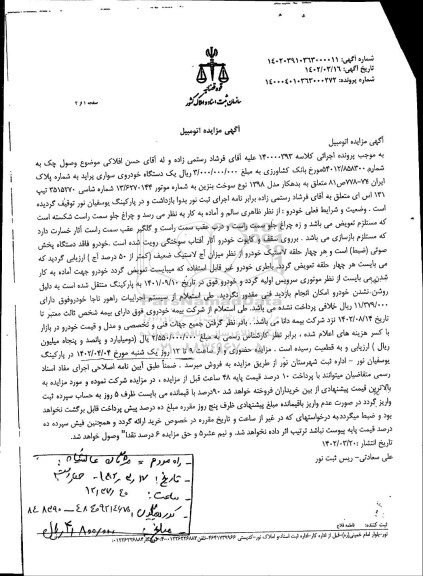 شماره آگهی: ۱۴۰۲۰۳۹۱۰۳۶۳۰۰۰۰۱۱
تاریخ آگهی: ۱۴۰۲/۰۳/۱۶
شماره پرونده: ۱۴۰۰۰۴۰۱۰۳۶۳۰۰۰۲۷۲
سازمان ثبت اسناد و املاک کشور
صفحه ۱ از ۲
آگهی مزایده اتومبیل
آگهی مزایده اتومبیل
به موجب پرونده اجرائی کلاسه ۱۴۰۰۰۰۳۹۳ علیه آقای فرشاد رستمی زاده و له آقای حسن افلاکی موضوع وصول چک به
شماره ۵۴۰۱۲/۸۵۸۳۰۰ مورخ بانک کشاورزی به مبلغ ۳/۰۰۰/۰۰۰/۰۰۰ ریال یک دستگاه خودروی سواری پراید به شماره پلاک
ایران ۷۴-۷۷۸ص۸۱ متعلق به بدهکار مدل ۱۳۹۸ نوع سوخت بنزین به شماره موتور ۱۳/۶۲۷۰۱۴۴ شماره شاسی ۳۵۱۵۲۷۰ تیپ
۱۳۱ اس ای متعلق به آقای فرشاد رستمی زاده برابر نامه اجرای ثبت نور بدوا بازداشت و در پارکینگ یوسفیان نور توقیف گردیده
است . وضعیت و شرایط فعلی خودرو : از نظر ظاهری سالم و آماده به کار به نظر می رسد و چراغ جلو سمت راست شکسته است
که مستلزم تعویض می باشد و زه چراغ جلو سمت راست و درب عقب سمت راست و گلگیر عقب سمت راست آثار خسارت دارد
که مستلزم بازسازی می باشد . برروی سقف و کاپوت خودرو آثار آفتاب سوختگی رویت شده است .خودرو فاقد دستگاه پخش
صوتی (ضبط) است و هر چهار حلقه لاستیک خودرو از نظر میزان آج لاستیک ضعیف (کمتر از ۵۰ درصد آج ) ارزیابی گردید که
می بایست هر چهار حلقه تعویض گردد. باطری خودرو غیر قابل استفاده که میبایست تعویض گردد خودرو جهت آماده به کار
شدن می بایست از نظر موتوری سرویس اولیه گردد و خودرو فوق در تاریخ ۱۴۰۱/۰۹/۱۰ به پارکینگ منتقل شده است به دلیل
روشن نشدن خودرو امکان انجام بازدید فنی مقدور نگردید. طی استعلام از سیستم اجراییات راهور ناجا خودروفوق دارای
۱۱/۳۷۹/۰۰۰ ریال خلافی پرداخت نشده می باشد. طی استعلام از شرکت بیمه خودروی فوق دارای بیمه شخص ثالث معتبر تا
تاریخ ۱۴۰۲/۰۸/۱۴ نزد شرکت بیمه دانا می باشد. .بادر نظر گرفتن جمیع جهات فنی و تخصصی و مدل و قیمت خودرو در بازار
با کسر هزینه های اعلام شده ، برابر نظر کارشناس رسمی به مبلغ ۲/۵۵۰/۰۰۰/۰۰۰ ریال (دومیلیارد و پانصد و پنجاه میلیون
ریال ) ارزیابی و به قطعیت رسیده است . مزایده حضوری و از ساعت ۹ تا ۱۲ روز یک شنبه مورخ ۱۴۰۲/۰۴/۰۴ در پارکینگ
یوسفیان نور - اداره ثبت شهرستان نور از طریق مزایده به فروش میرسد . ضمناً طبق آیین نامه اصلاحی اجرای مفاد اسناد
رسمی متقاضیان میتوانند با پرداخت ۱۰ درصد قیمت پایه ۴۸ ساعت قبل از مزایده ، در مزایده شرکت نموده و مورد مزایده به
بالاترین قیمت پیشنهادی از بین خریداران فروخته خواهد شد ۹۰درصد با قیمانده می بایست ظرف ۵ روز به حساب سپرده ثبت
واریز گردد در صورت عدم واریز باقیمانده مبلغ پیشنهادی ظرف پنج روز مقرره مبلغ ده درصد پیش پرداخت قابل برگشت نخواهد
بود و ضبط میگردد.به درخواستهای که در غیر از ساعت و تاریخ مقرره در خصوص خرید ارائه گردد و همچنین فیش سپرده ده
درصد قیمت پایه پیوست نباشد ترتیب اثر داده نخواهد شد. و نیم عشر۵ و حق مزایده ۶ درصد نقدا" وصول خواهد شد.
تاریخ انتشار :۱۴۰۲/۰۳/۲۰
علی سعادتی- ریس ثبت نور
تاریخ:
ساعت:
مبلغ:
ریال
ثبت کننده: فاطمه فلاح